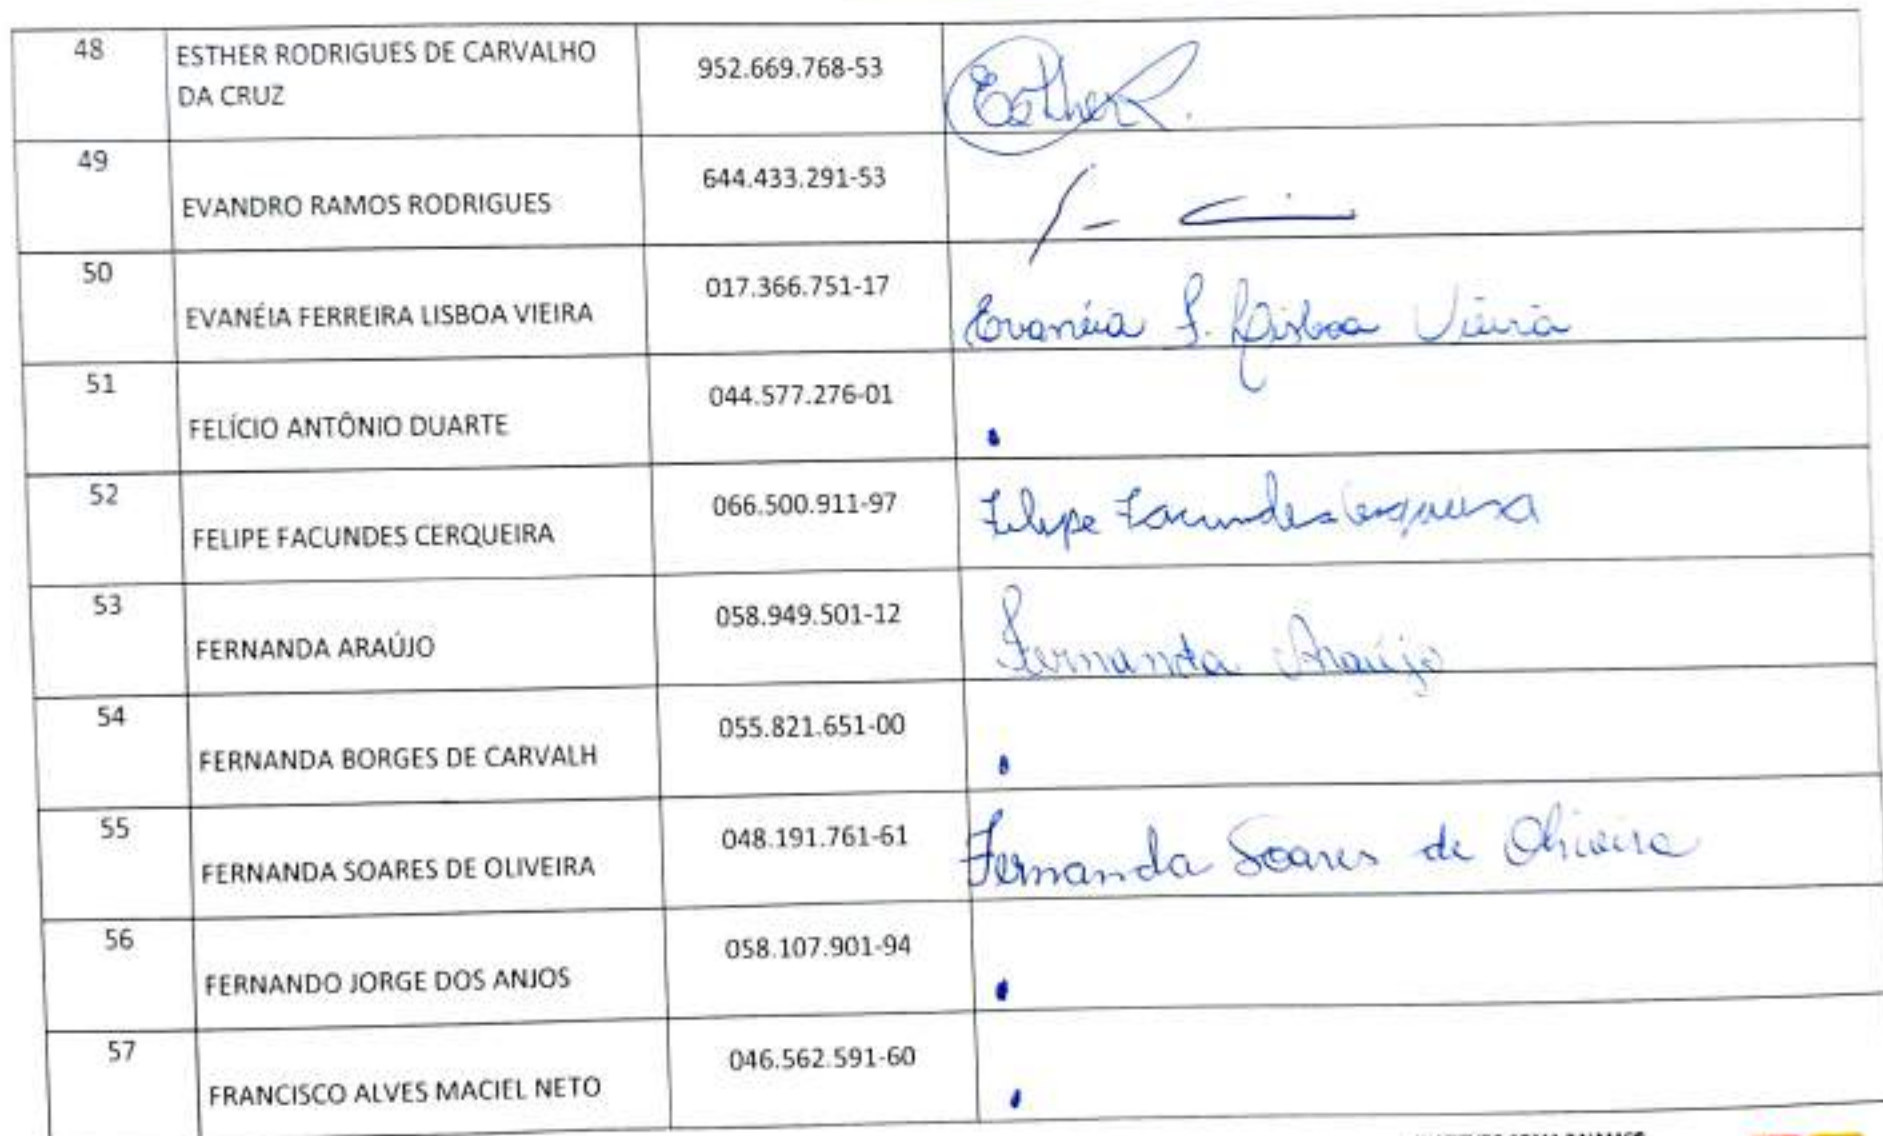 48 ESTHER RODRIGUES DE CARVALHO 952.669.768-53 Esther R.
DA CRUZ
49 EVANDRO RAMOS RODRIGUES 644.433.291-53
50 EVANÉIA FERREIRA LISBOA VIEIRA 017.366.751-17 Evanéia F. Lisboa Vieira
51 FELÍCIO ANTÔNIO DUARTE 044.577.276-01
52 FELIPE FACUNDES CERQUEIRA 066.500.911-97 Felipe Facundes Cerqueira
53 FERNANDA ARAÚJO 058.949.501-12 Fernanda Araújo
54 FERNANDA BORGES DE CARVALH 055.821.651-00
55 FERNANDA SOARES DE OLIVEIRA 048.191.761-61 Fernanda Soares de Oliveira
56 FERNANDO JORGE DOS ANJOS 058.107.901-94
57 FRANCISCO ALVES MACIEL NETO 046.562.591-60